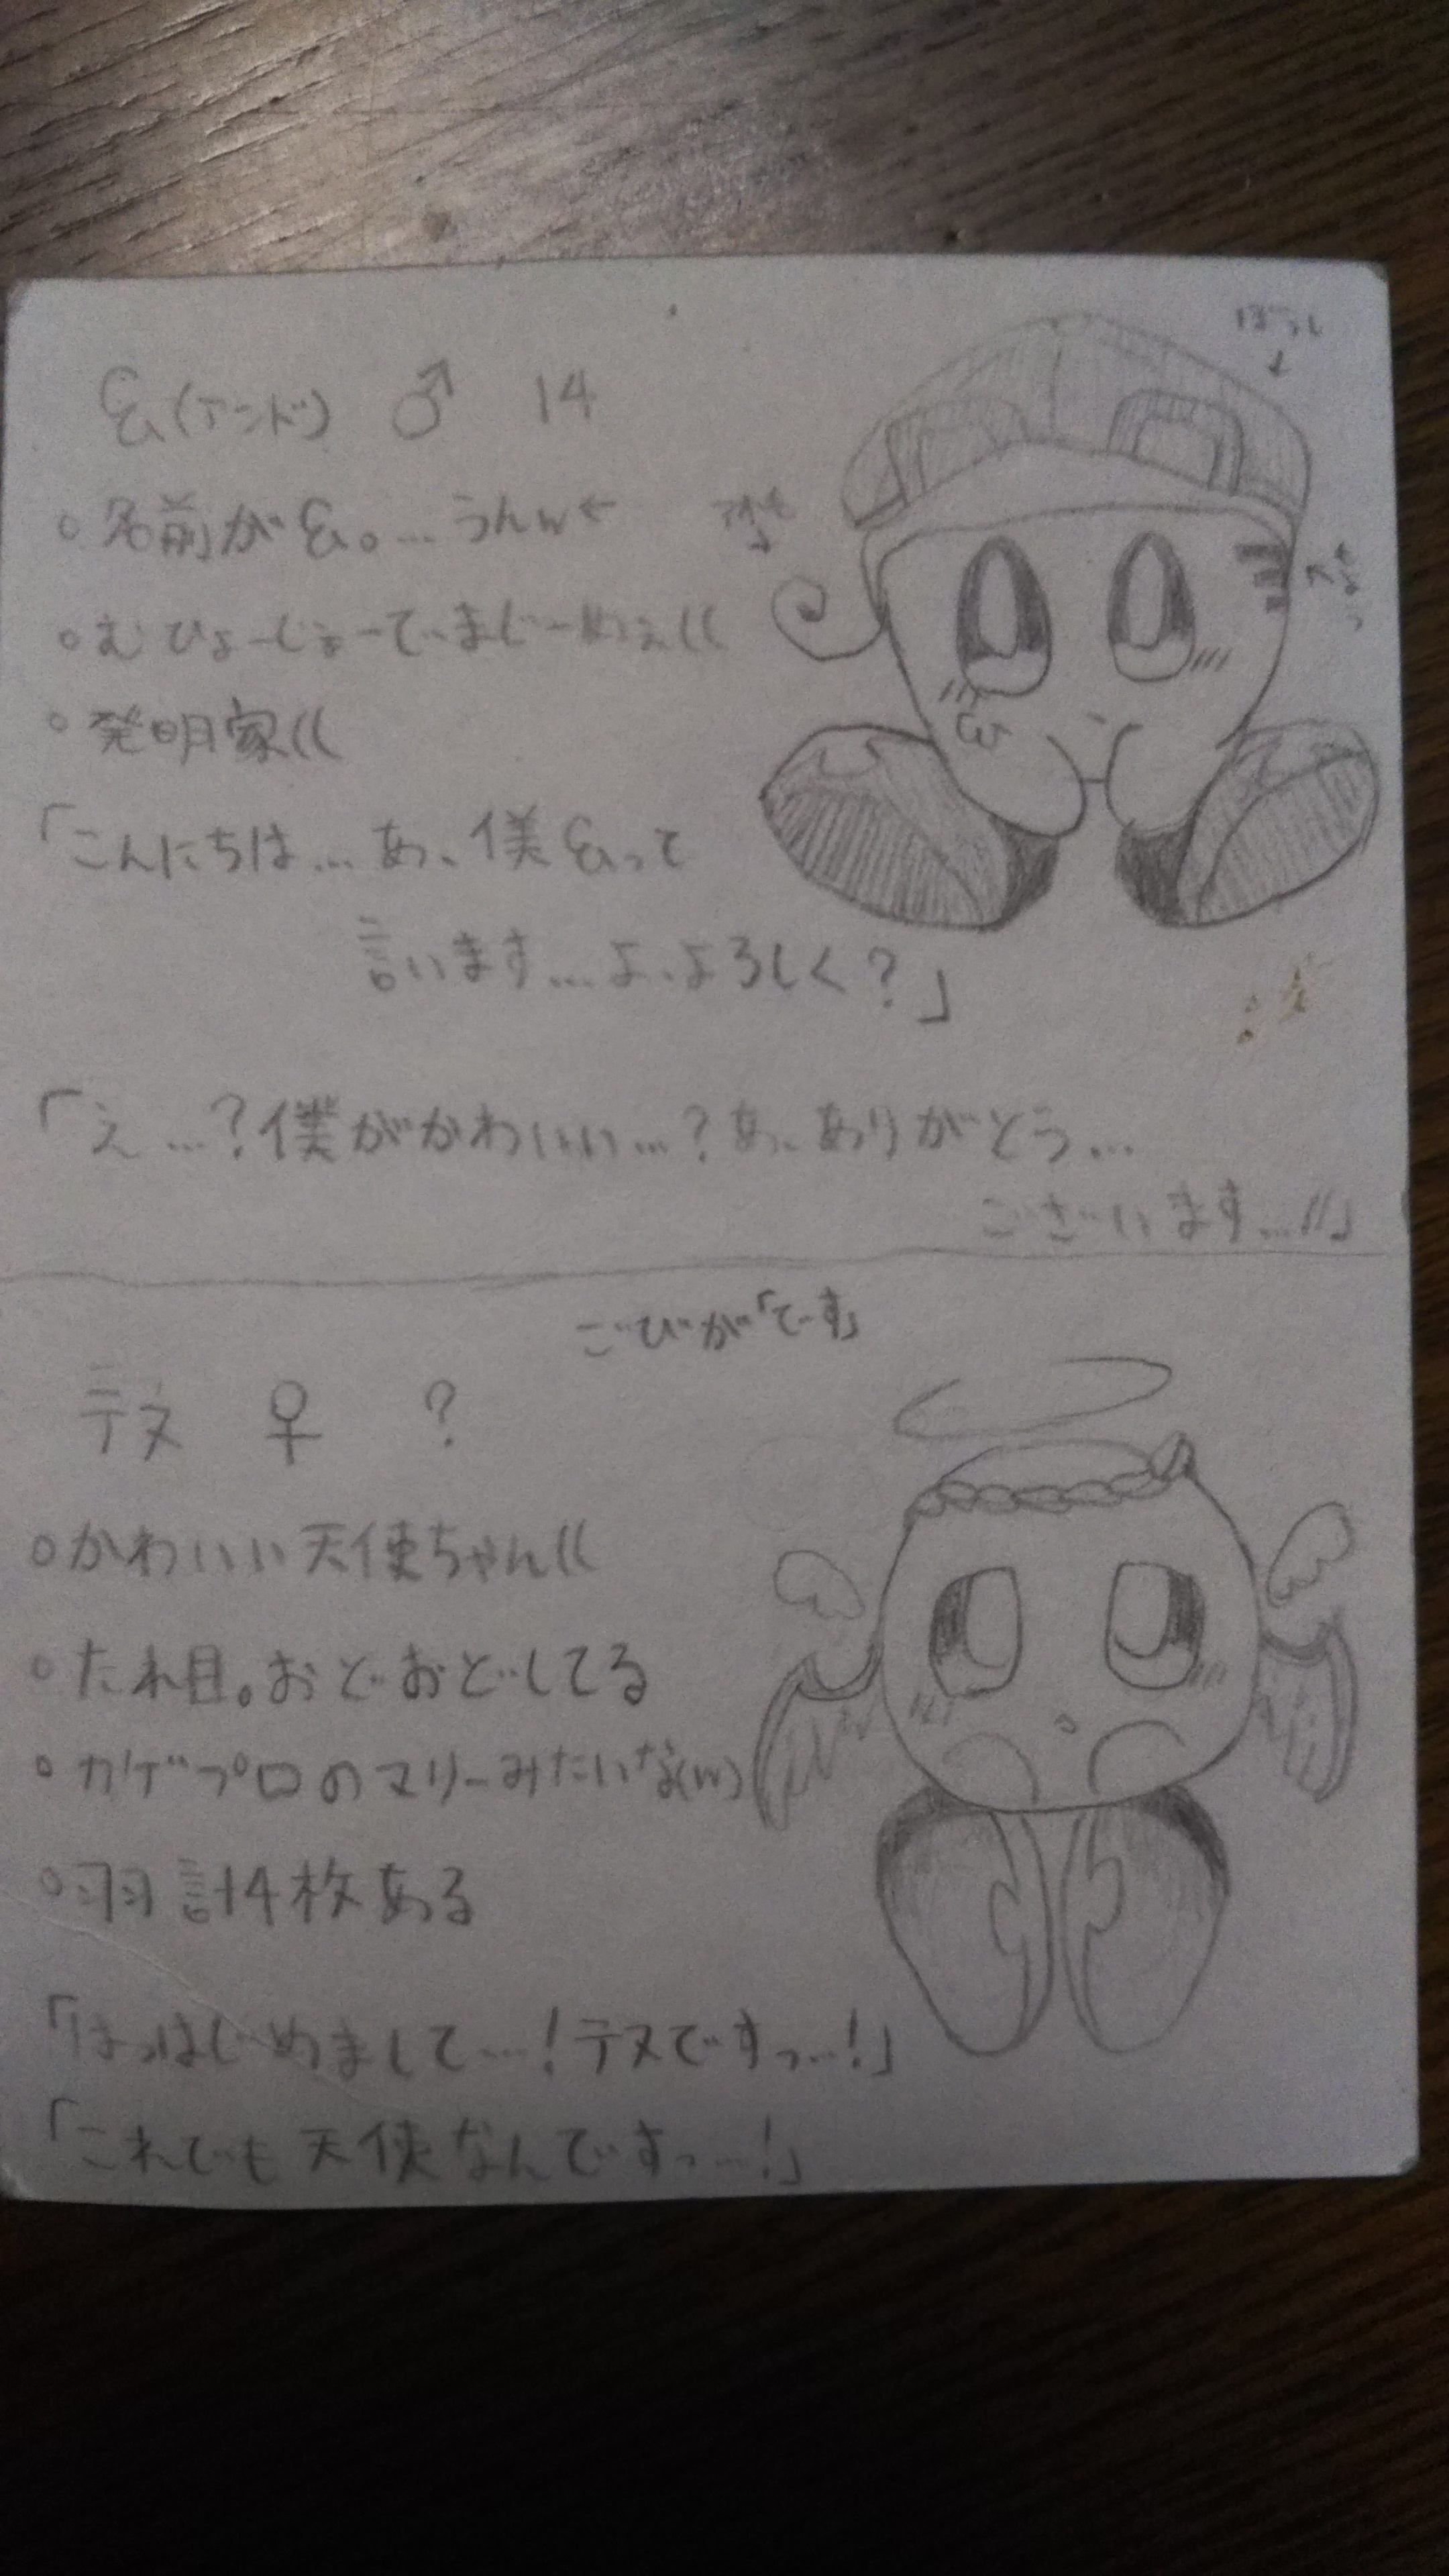 ぼうし
↓
&(アンド) ♂ 14
○名前が&。…うんw←
○むひょーじょーでまじーめぇ((
○発明家((
「こんにちは…あ、僕&って
言います…よ、よろしく?」
「え…?僕がかわいい…?あ、ありがとう…
ございます…//」
ごびが「です」
テヌ ♀ ?
○かわいい天使ちゃん((
○たれ目。おどおどしてる
○カゲプロのマリーみたいな(w)
○羽計4枚ある
「はっはじめまして…!テヌですっ…!」
「これでも天使なんですっ…!」